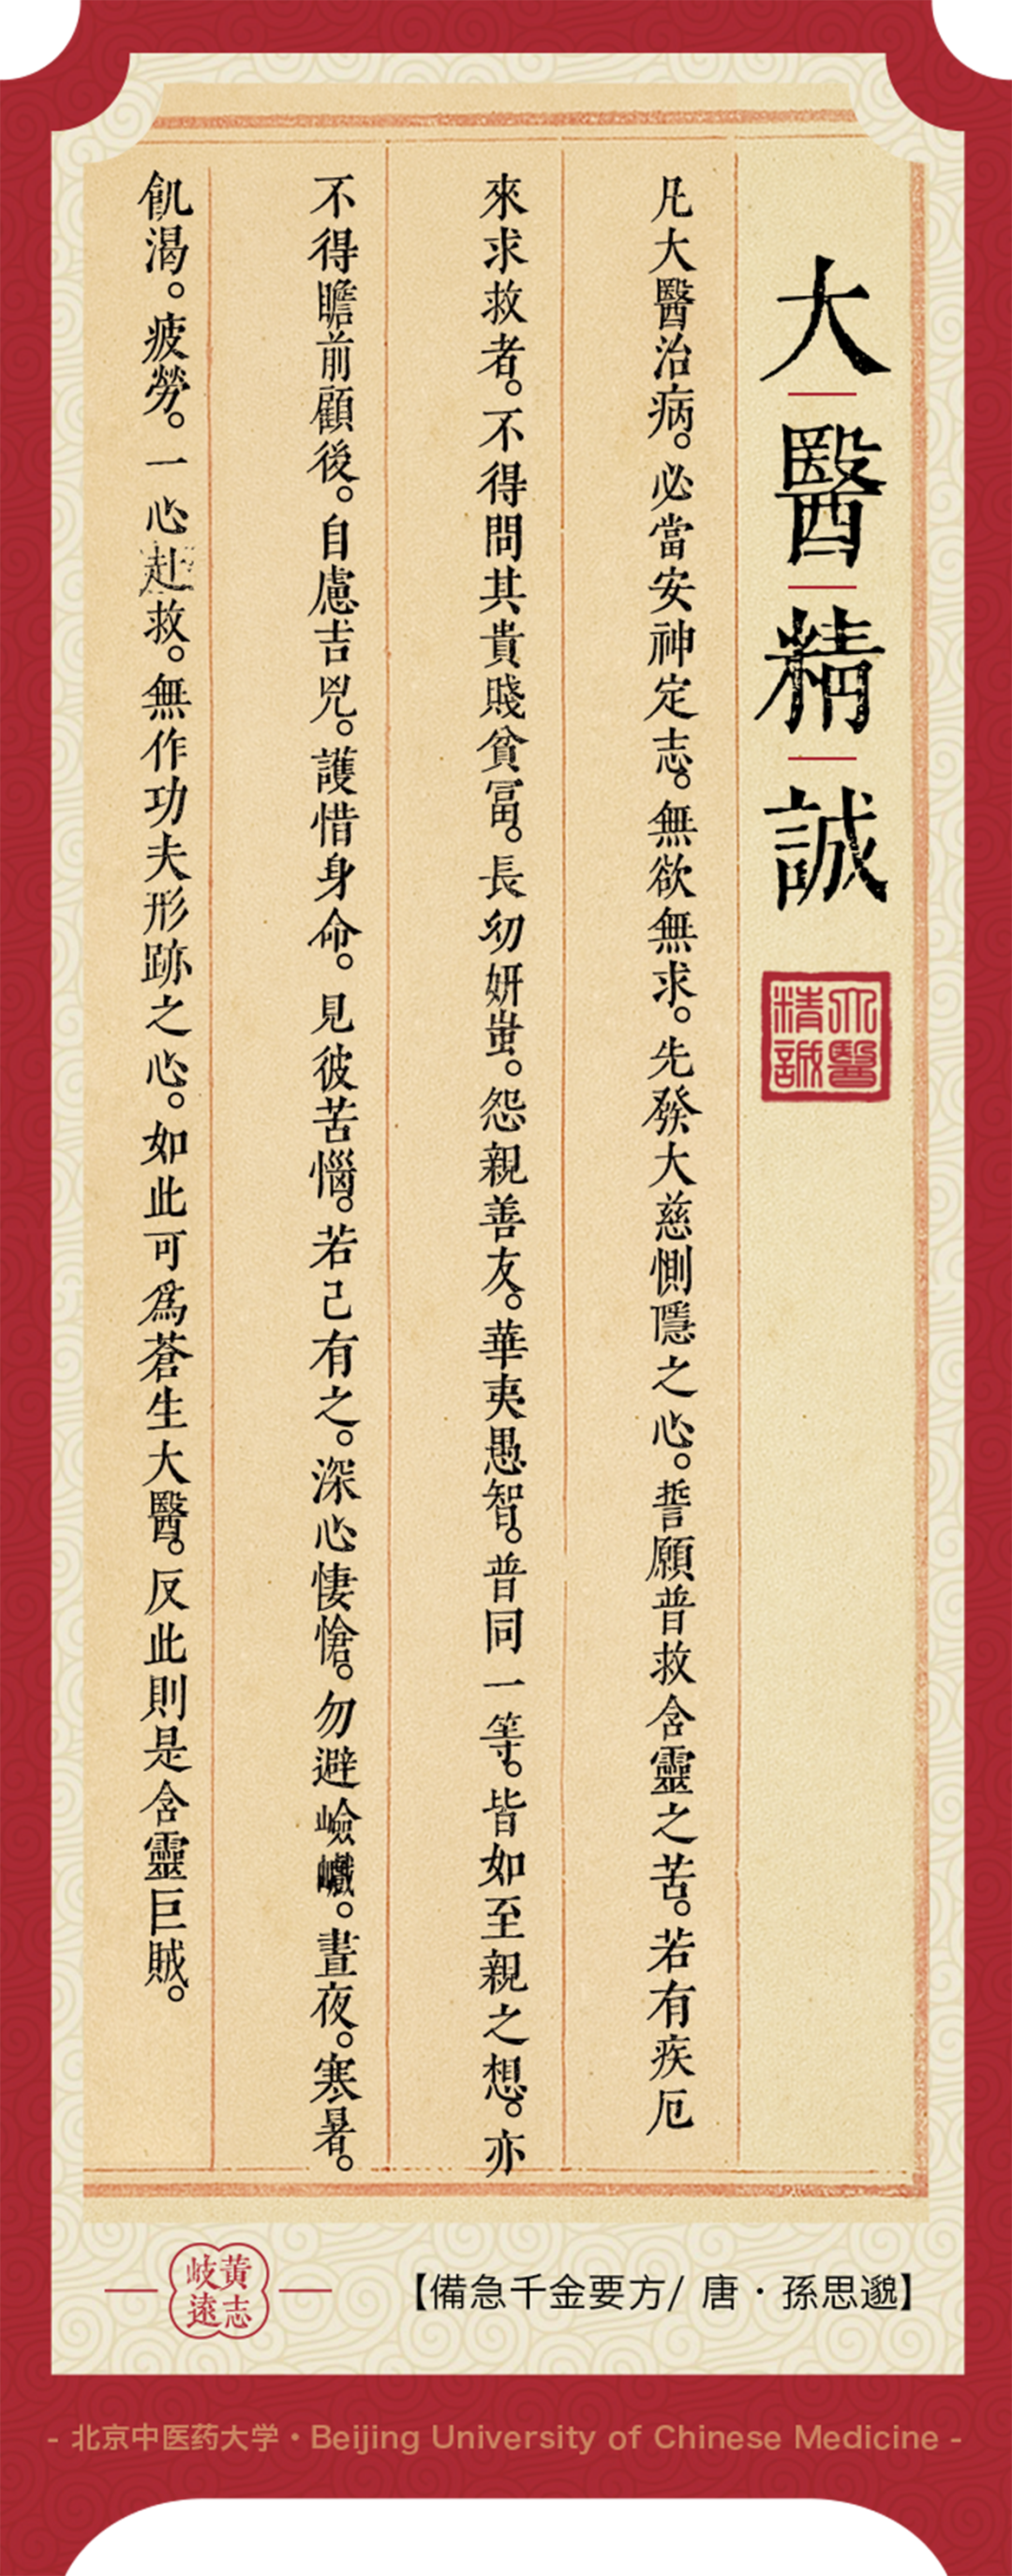 大醫精誠
大醫精誠
凡大醫治病。必當安神定志。無欲無求。先發大慈惻隱之心。誓願普救含靈之苦。若有疾厄
來求救者。不得問其貴賤貧冨。長幼妍蚩。怨親善友。華夷愚智。普同一等。皆如至親之想。亦
不得瞻前顧後。自慮吉兇。護惜身命。見彼苦惱。若己有之。深心悽愴。勿避嶮巇。晝夜。寒暑。
飢渴。疲勞。一心赴救。無作功夫形跡之心。如此可為蒼生大醫。反此則是含靈巨賊。
岐黄志遠
【備急千金要方/ 唐·孫思邈】
- 北京中医药大学·Beijing University of Chinese Medicine -